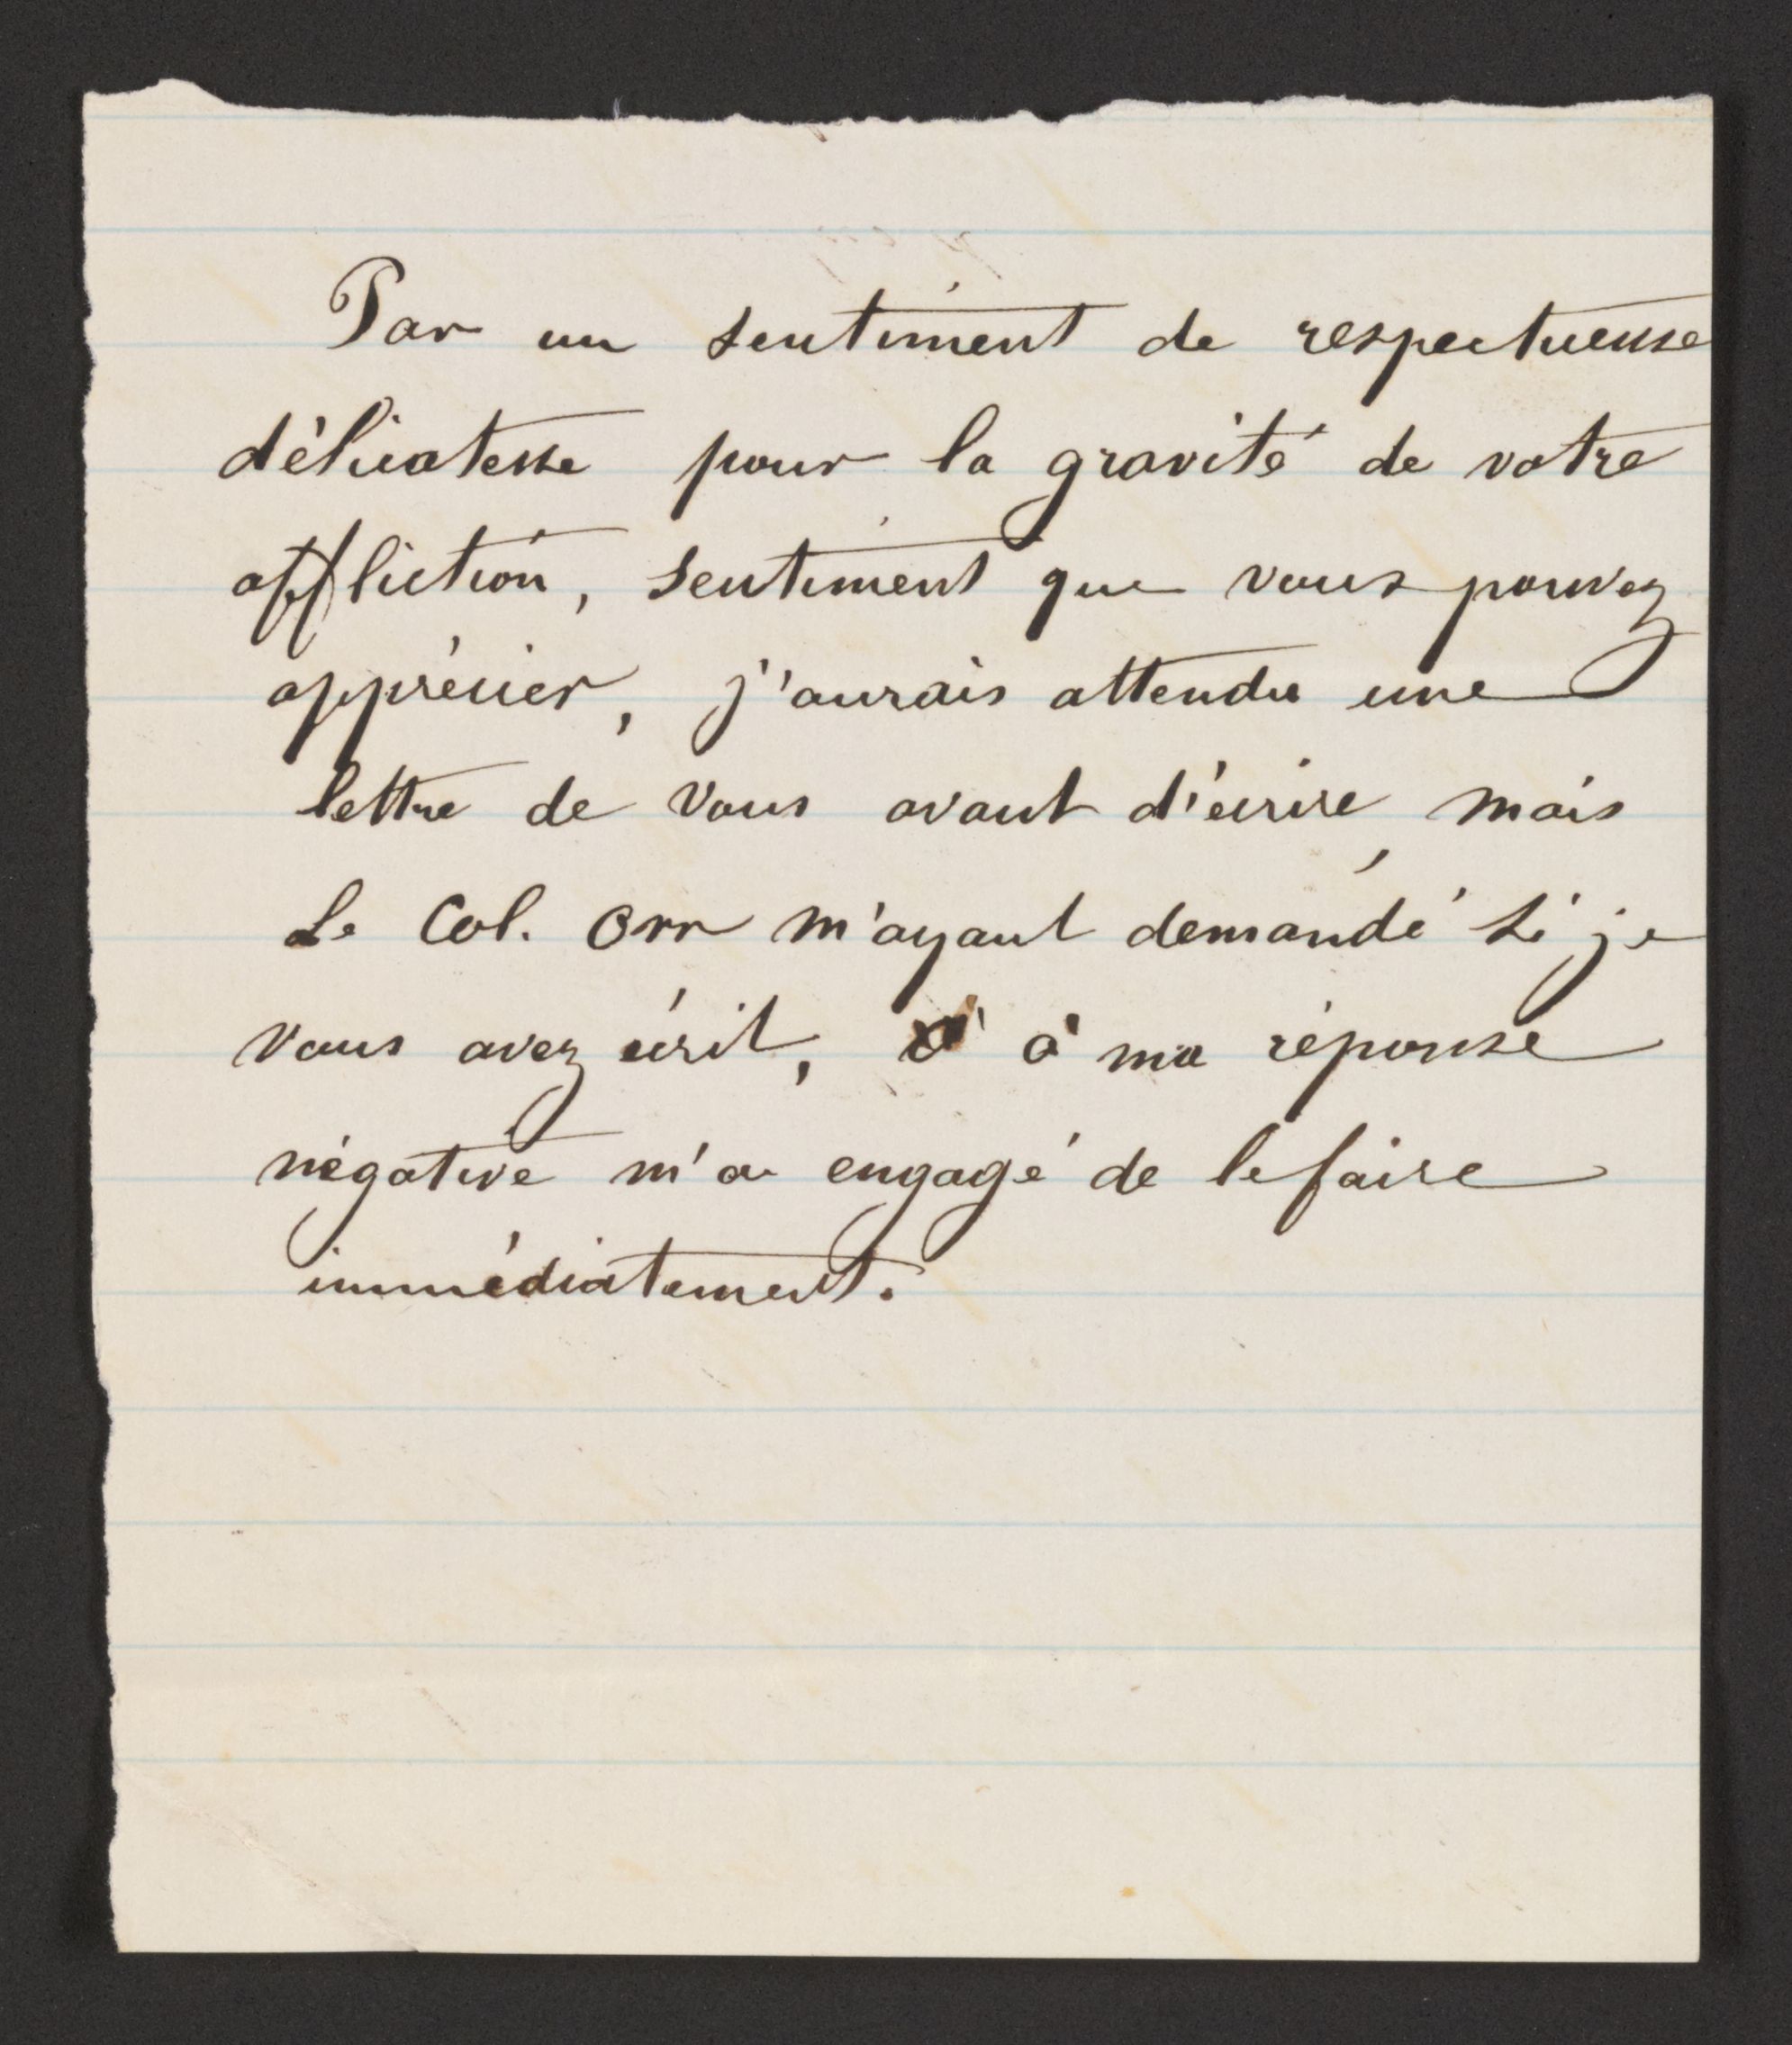 Par un sentiment de respectueuse
délicatesse pour la gravité de votre
affliction, sentiment que vous pouvez
apprécier, j'aurais attendu une
lettre de vous avant d'écrire, mais
Le Col. Orr m'ayant demandé si je
vous avez écrit, à ma réponse
négative m'a engagé de le faire
immédiatement.